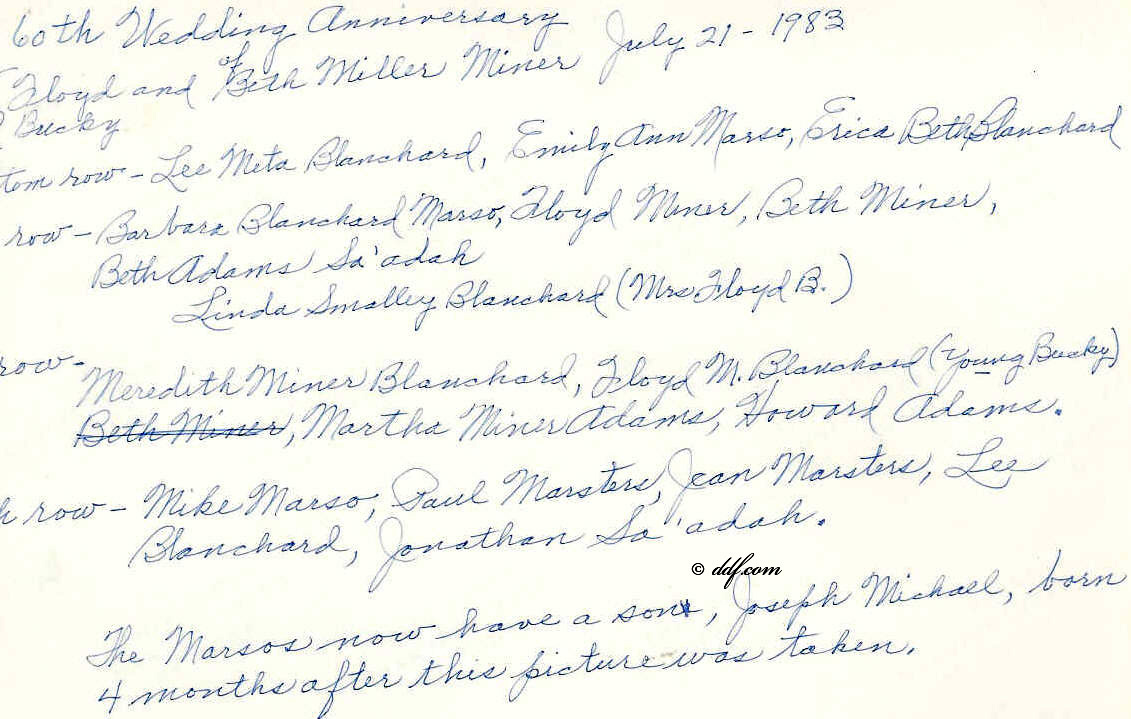 60th Wedding Anniversary July 21 - 1983
of
Floyd and Beth Miller Miner
Bucky
tom row - Lee Meta Blanchard, Emily Ann Marso, Erica Beth Blanchard
row - Barbara Blanchard Marso, Floyd Miner, Beth Miner,
Beth Adams Sa'adah
Linda Smalley Blanchard (Mrs Floyd B.)
row -
Meredith Miner Blanchard, Floyd M. Blanchard (Young Bucky)
Beth Miner, Martha Miner Adams, Howard Adams.
h row - Mike Marso, Paul Marsters, Jean Marsters, Lee
Blanchard, Jonathan Sa'adah.
© ddf.com
The Marsos now have a son, Joseph Michael, born
4 months after this picture was taken.